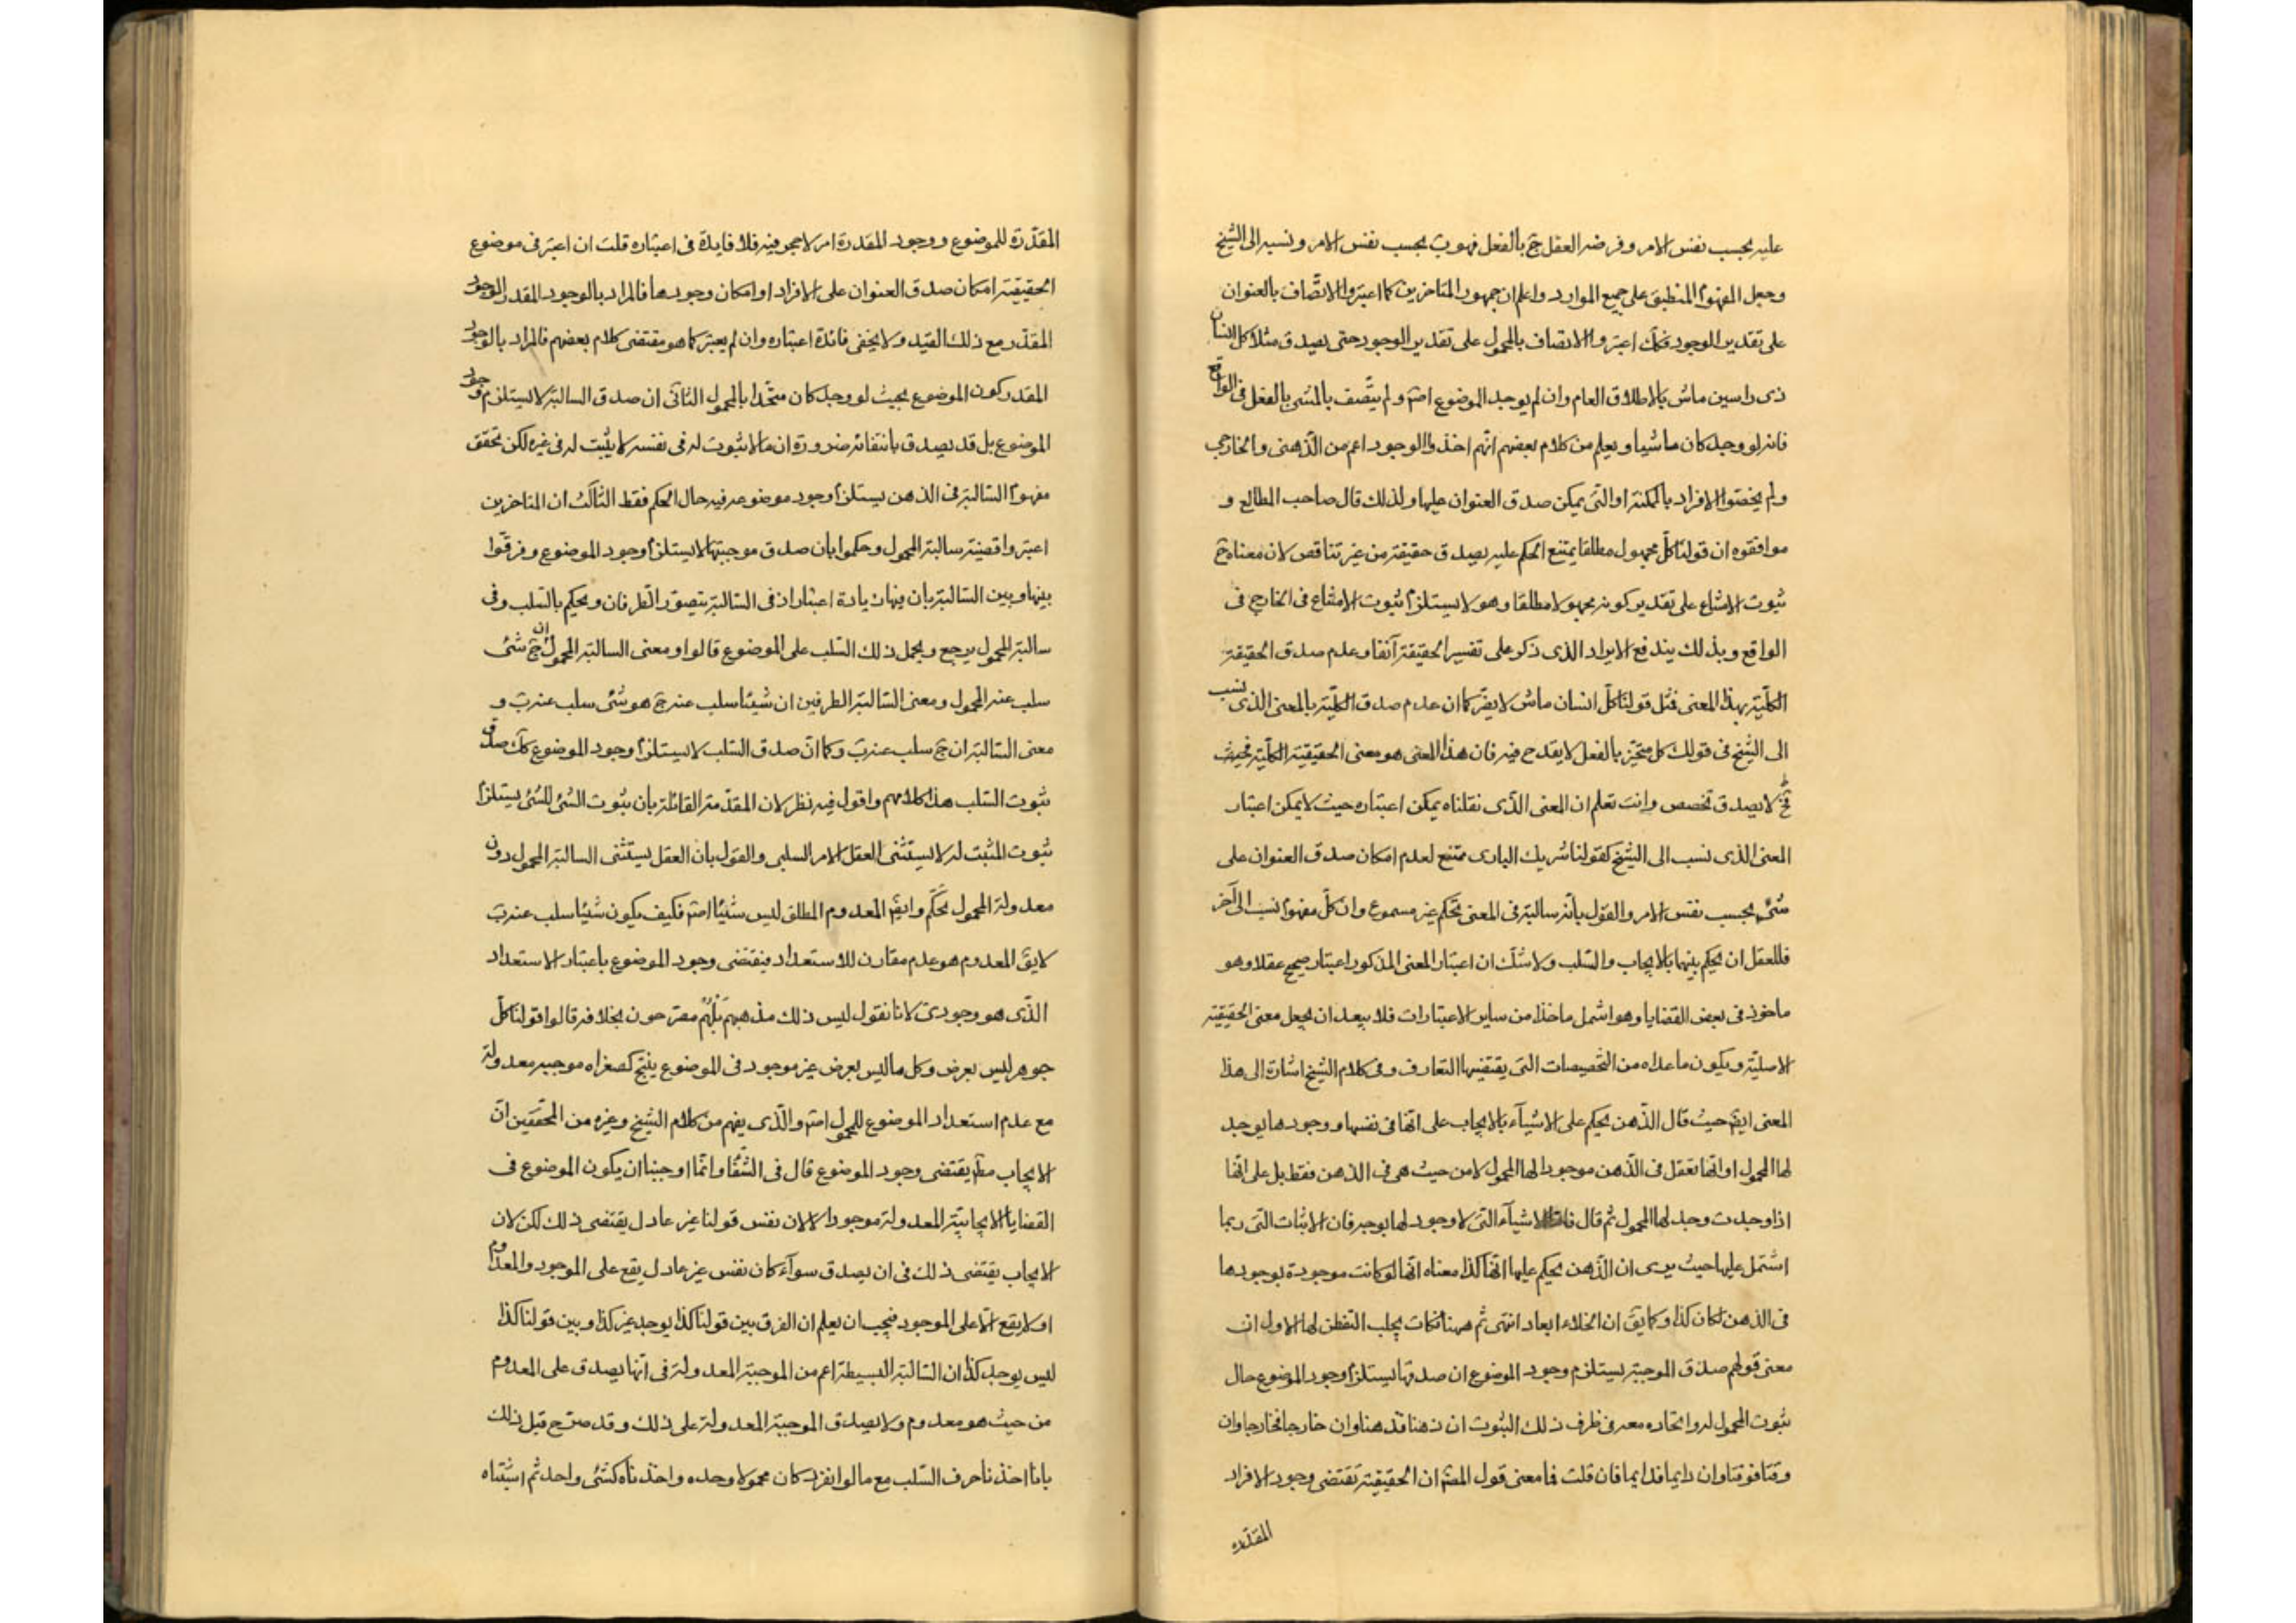 عليه بحسب نفس الامر وفرضه العقل ج بالفعل فهو ب بحسب نفس الامر ونسبه الى الشيخ
وجعل المفهوم المنطبق على جميع الموارد واعلم ان جمهور المتاخرين كما اعتبروا الاتصاف بالعنوان
على تقدير الوجود فكك اعتبروا الاتصاف بالمحمول على تقدير الوجود حتى يصدق مثلا كل انسان
ذى راسين ماش بالاطلاق العام وان لم يوجد الموضوع اصم ولم يتصف بالمشى بالفعل فى الواقع
فانه لو وجد كان ماشيا ويعلم من كلام بعضهم انهم اخذوا الوجود اعم من الذهنى والخارجى
ولم يخصوا الافراد بالممكنة او التى يمكن صدق العنوان عليها ولذلك قال صاحب المطالع و
موافقوه ان قولنا كل مجهول مطلقا يمتنع الحكم عليه يصدق حقيقة من غير تناقض لان معناه ح
ثبوت الامتناع على تقدير كونه مجهولا مطلقا وهو لا يستلزم ثبوت الامتناع فى الخارج فى
الواقع وبذلك يندفع الايراد الذى ذكر على تفسير الحقيقة آنفا وعدم صدق الحقيقة
الكلية بهذا المعنى فى مثل قولنا كل انسان ماش لا يضر كما ان عدم صدق الكلية بالمعنى الذى نسب
الى الشيخ فى قولك كل متحيز بالفعل لا يقدح فيه فان هذا المعنى هو معنى الحقيقية الكلية فحيث
لا يصدق تخصص وانت تعلم ان المعنى الذى نقلناه يمكن اعتباره حيث لا يمكن اعتبار
المعنى الذى نسب الى الشيخ كقولنا شريك البارى ممتنع لعدم امكان صدق العنوان على
شئ بحسب نفس الامر والقول بانه سالبة فى المعنى تحكم غير مسموع وان كل مفهوم نسب الى آخر
فللعقل ان يحكم بينهما بالايجاب والسلب ولا شك ان اعتبار المعنى المذكور اعتبار صحيح عقلا وهو
ماخوذ فى بعض القضايا وهو اشمل ماخذا من ساير الاعتبارات فلا يبعد ان يجعل معنى الحقيقية
الاصلية ويكون ما عداه من التخصيصات التى يقتضيها التعارف وفى كلام الشيخ اشارة الى هذا
المعنى ايضم حيث قال الذهن يحكم على الاشيآء بالايجاب على انها فى نفسها ووجودها يوجد
لها المحمول او انها تعقل فى الذهن موجودا لها المحمول لا من حيث هى فى الذهن فقط بل على انها
اذا وجدت وجد لها المحمول ثم قال فاما الاشيآء التى لا وجود لها بوجه فان الاثبات التى ربما
اشتمل عليها حيث يرى ان الذهن يحكم عليها انها كذا معناه انها لو كانت موجودة بوجودها
فى الذهن لكان كذا وكما يق ان الخلاء ابعاد انتهى ثم ههنا نكات يجلب التفطن لها الاول ان
معنى قولهم صدق الموجبة يستلزم وجود الموضوع ان صدقها يستلزم وجود الموضوع حال
ثبوت المحمول له واتحاده معه فى ظرف ذلك الثبوت ان ذهنا فذهنا وان خارجا فخارجا وان
وقتا فوقتا وان دايما فدايما فان قلت فما معنى قول المصم ان الحقيقية تقتضى وجود الافراد
المقدره
المقدرة للموضوع ووجود المقدرة امر لا فيه فلا فايدة فى اعتباره قلت ان اعتبر فى موضوع
الحقيقية امكان صدق العنوان على الافراد او امكان وجودها فالمراد بالوجود المقدر الوجود
المقدر مع ذلك القيد ولا يخفى فائدة اعتباره وان لم يعتبر كما هو مقتضى كلام بعضهم فالمراد بالوجود
المقدر كون الموضوع بحيث لو وجد كان متحدا بالمحمول الثانى ان صدق السالبة لا يستلزم وجود
الموضوع بل قد يصدق بانتفائه ضرورة ان ما لا ثبوت له فى نفسه لا يثبت له فى غيره لكن تحقق
مفهوم السالبة فى الذهن يستلزم وجود موضوعه فيه حال الحكم فقط الثالث ان المتاخرين
اعتبروا قضية سالبة المحمول وحكموا بان صدق موجبتها لا يستلزم وجود الموضوع وفرقوا
بينها وبين السالبة بان فيها زيادة اعتبار اذ فى السالبة يتصور الطرفان ويحكم بالسلب وفى
سالبة المحمول يرجع ويحمل ذلك السلب على الموضوع قالوا ومعنى السالبة المحمول ان ج شئ
سلب عنه المحمول ومعنى السالبة الطرفين ان شيئا سلب عنه ج هو شئ سلب عنه ب و
معنى السالبة ان ج سلب عنه ب وكما ان صدق السلب لا يستلزم وجود الموضوع كك صدق
ثبوت السلب هذا كلامهم واقول فيه نظر لان المقدمة القائلة بان ثبوت الشئ للشئ يستلزم
ثبوت المثبت له لا يستثنى العقل الامر السلبى والقول بان العقل يستثنى السالبة المحمول دون
معدولة المحمول تحكم وايضم المعدوم المطلق ليس شيئا اصم فكيف يكون شيئا سلب عنه ب
لا يق المعدوم هو عدم مقارن للاستعداد فيقتضى وجود الموضوع باعتبار الاستعداد
الذى هو وجودى لانا نقول ليس ذلك مذهبهم بل هم مصرحون بخلافه قالوا قولنا كل
جوهر ليس بعرض وكل ما ليس بعرض غير موجود فى الموضوع ينتج كصغراه موجبه معدولة
مع عدم استعداد الموضوع للمحمول اصم والذى يفهم من كلام الشيخ وغيره من المحققين ان
الايجاب مطم يقتضى وجود الموضوع قال فى الشفا وانما اوجبنا ان يكون الموضوع فى
القضايا الايجابية المعدولة موجودا لا لان نفس قولنا غير عادل يقتضى ذلك لكن لان
الايجاب يقتضى ذلك فى ان يصدق سوآء كان نفس غير عادل يقع على الموجود والمعدوم
او لا يقع الا على الموجود فيجب ان يعلم ان الفرق بين قولنا كذا يوجد غير كذا وبين قولنا كذا
ليس يوجد كذا ان السالبة البسيطة اعم من الموجبة المعدولة فى انها يصدق على المعدوم
من حيث هو معدوم ولا يصدق الموجبة المعدولة على ذلك وقد صرح قبل ذلك
بانا اخذنا حرف السلب مع ما لو انفرد كان محمولا وحده واخذناه كشئ واحد ثم اثبتناه